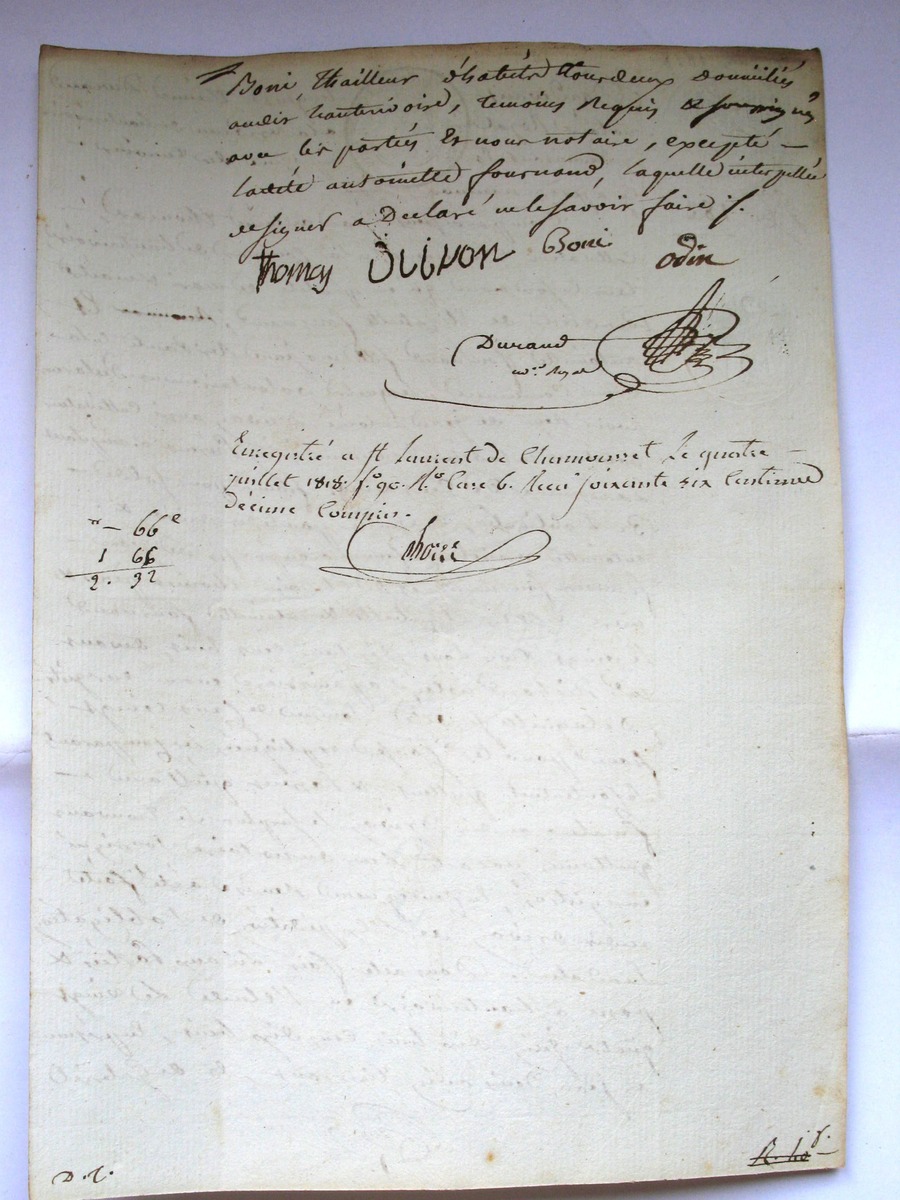 Boni, Thailleur d'habits tous deux Domiciliés
audit hauterivoire, temoins Requis & soussignés
avec les parties Et nous notaire, excepté —
ladite antoinette fournand, laquelle interpellée
de signer a Declaré ne le savoir faire ./.
Thomas Boni odin
Durand
not.re Royal
Enregistré a St Laurent de Chamousset Le quatre —
juillet 1818. f.o 90. R.o Case 6. Recu soixante six Centimes
décime Compris.
— 66 c
1 66
2. 32
D. R.